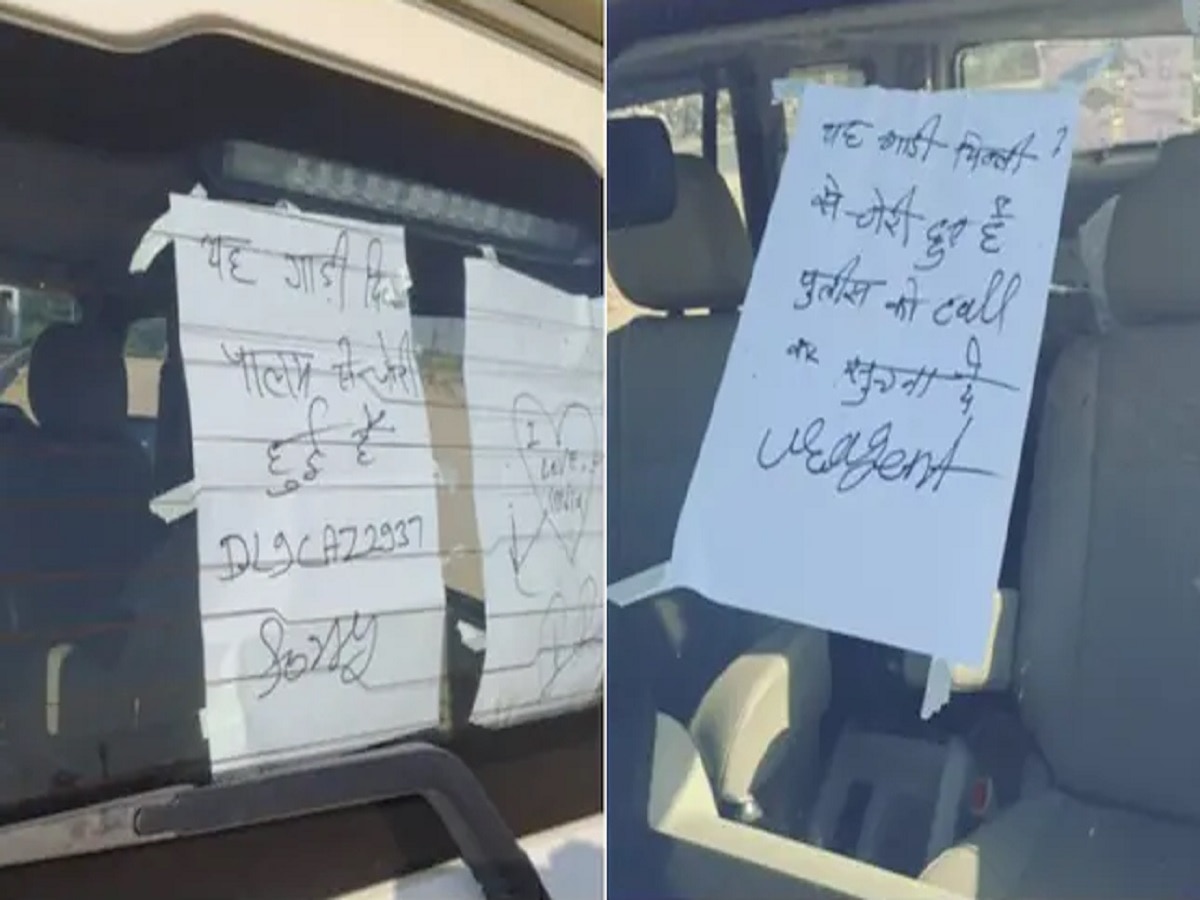 यह गाड़ी दिल्ली
पालम से चोरी
हुई है
DL9CAZ2937
Sorry
I
Love
India
यह गाडी दिल्ली
से चोरी हुई है
पुलीस को call
कर सुचना दे
Uragent